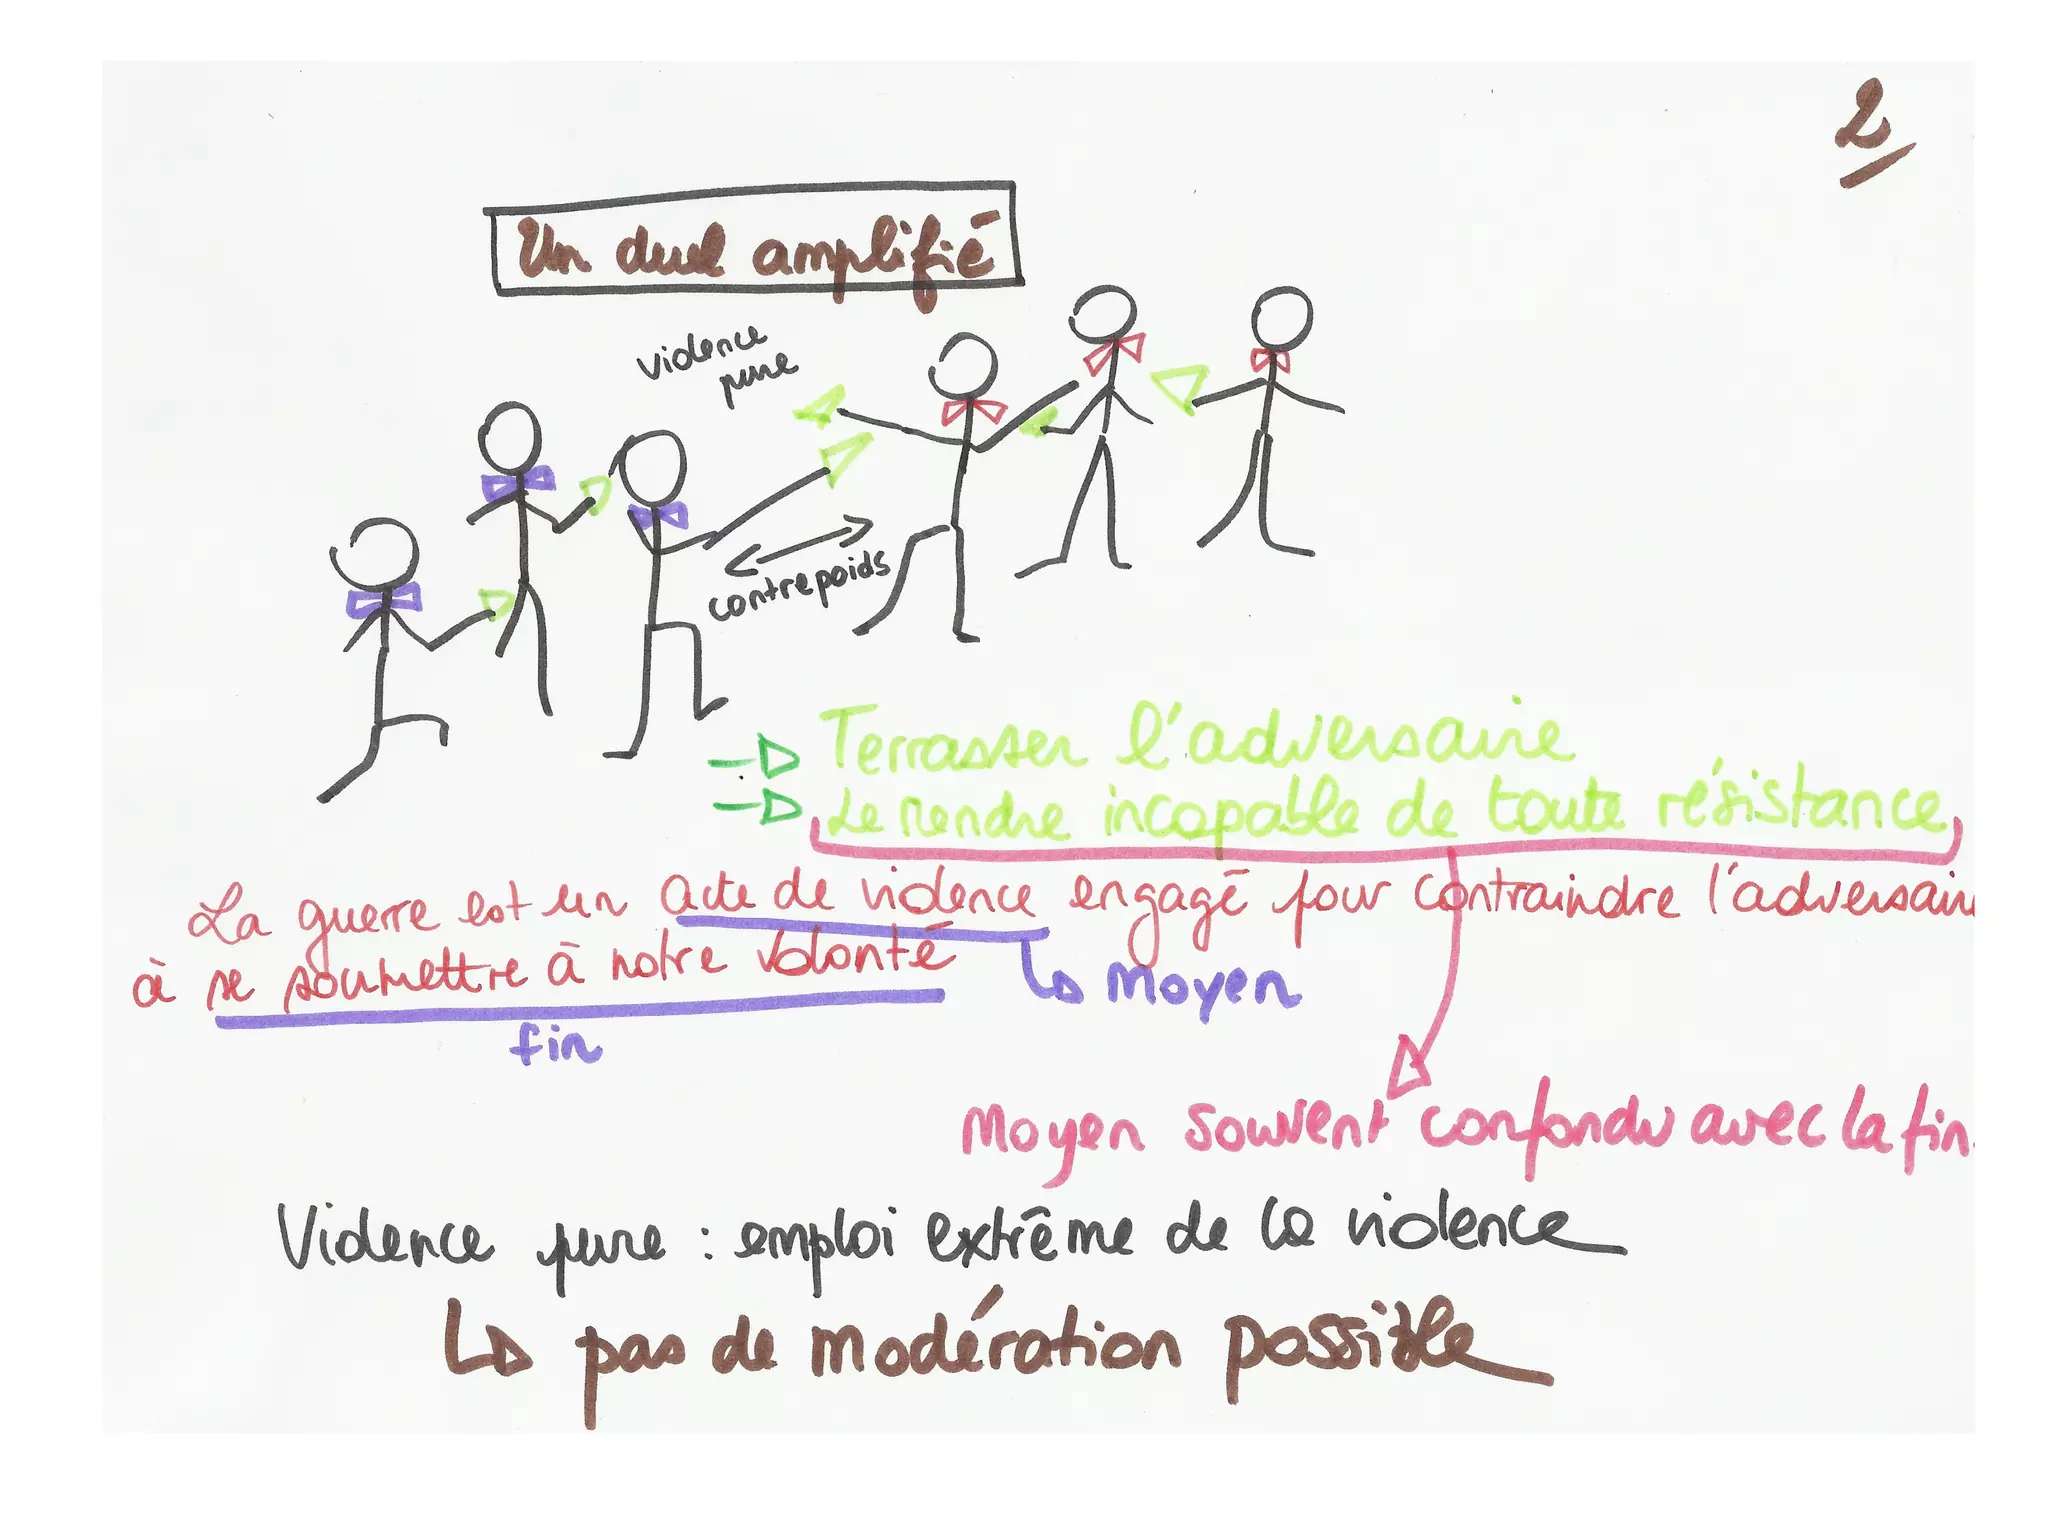 2
Un duel amplifié
violence
pure
contrepoids
Terrasser l'adversaire
Le rendre incapable de toute résistance
La guerre est un acte de violence engagé pour contraindre l'adversaire
à se soumettre à notre volonté
moyen
fin
Moyen souvent confondu avec la fin.
Violence pure : emploi extrême de la violence
pas de modération possible